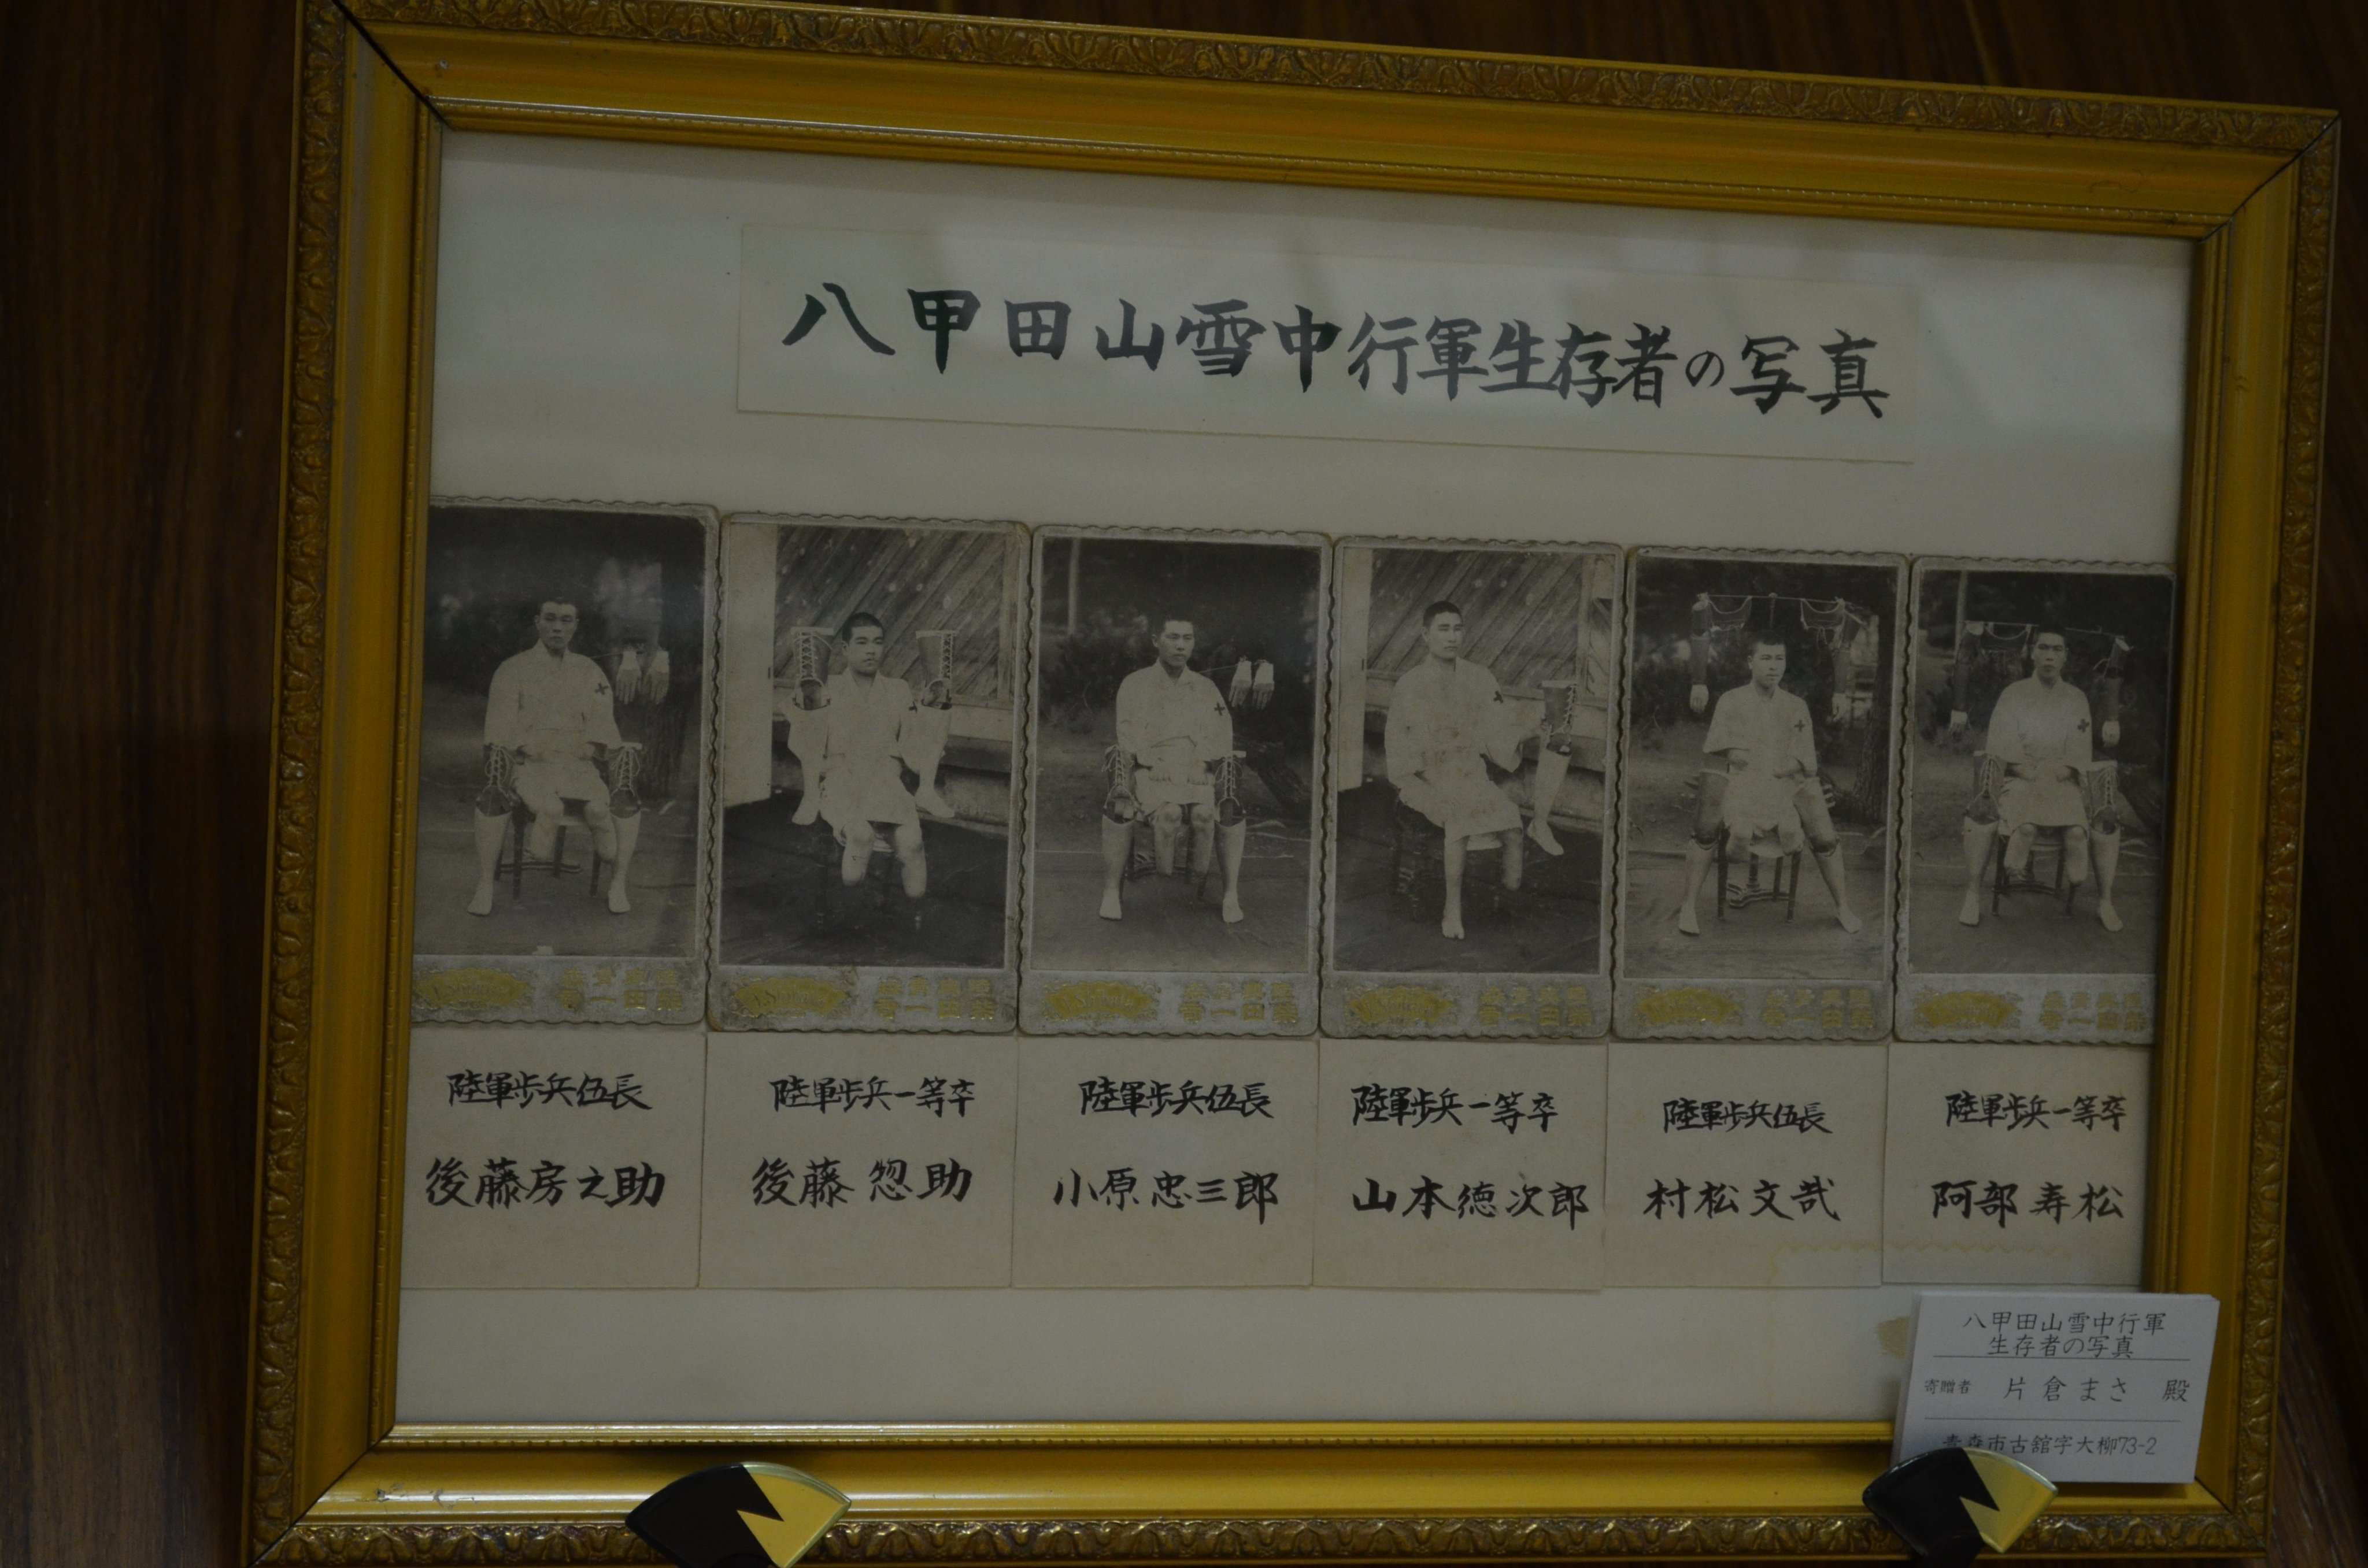 八甲田山雪中行軍生存者の写真
陸軍歩兵伍長
後藤房之助
陸軍歩兵一等卒
後藤惣助
陸軍歩兵伍長
小原忠三郎
陸軍歩兵一等卒
山本徳次郎
陸軍歩兵伍長
村松文哉
陸軍歩兵一等卒
阿部寿松
八甲田山雪中行軍
生存者の写真
寄贈者 片倉まさ 殿
青森市古舘字大柳73-2